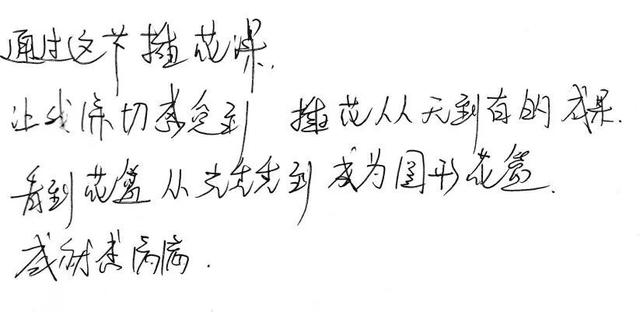 通过这节插花课,
让我深切感受到 插花从无到有的成果.
看到花篮从光秃秃到成为圆形花篮.
成就感满满.